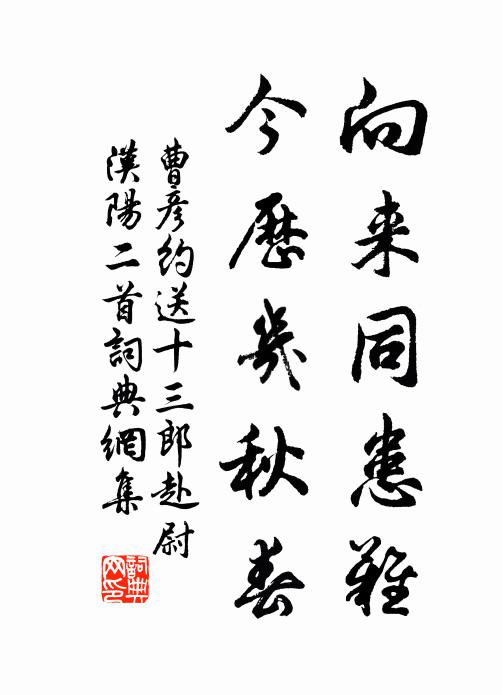 向来同患難
今歷幾秋春
曹彥約送十三郎赴尉
漢陽二首詞典網集
詞典网印